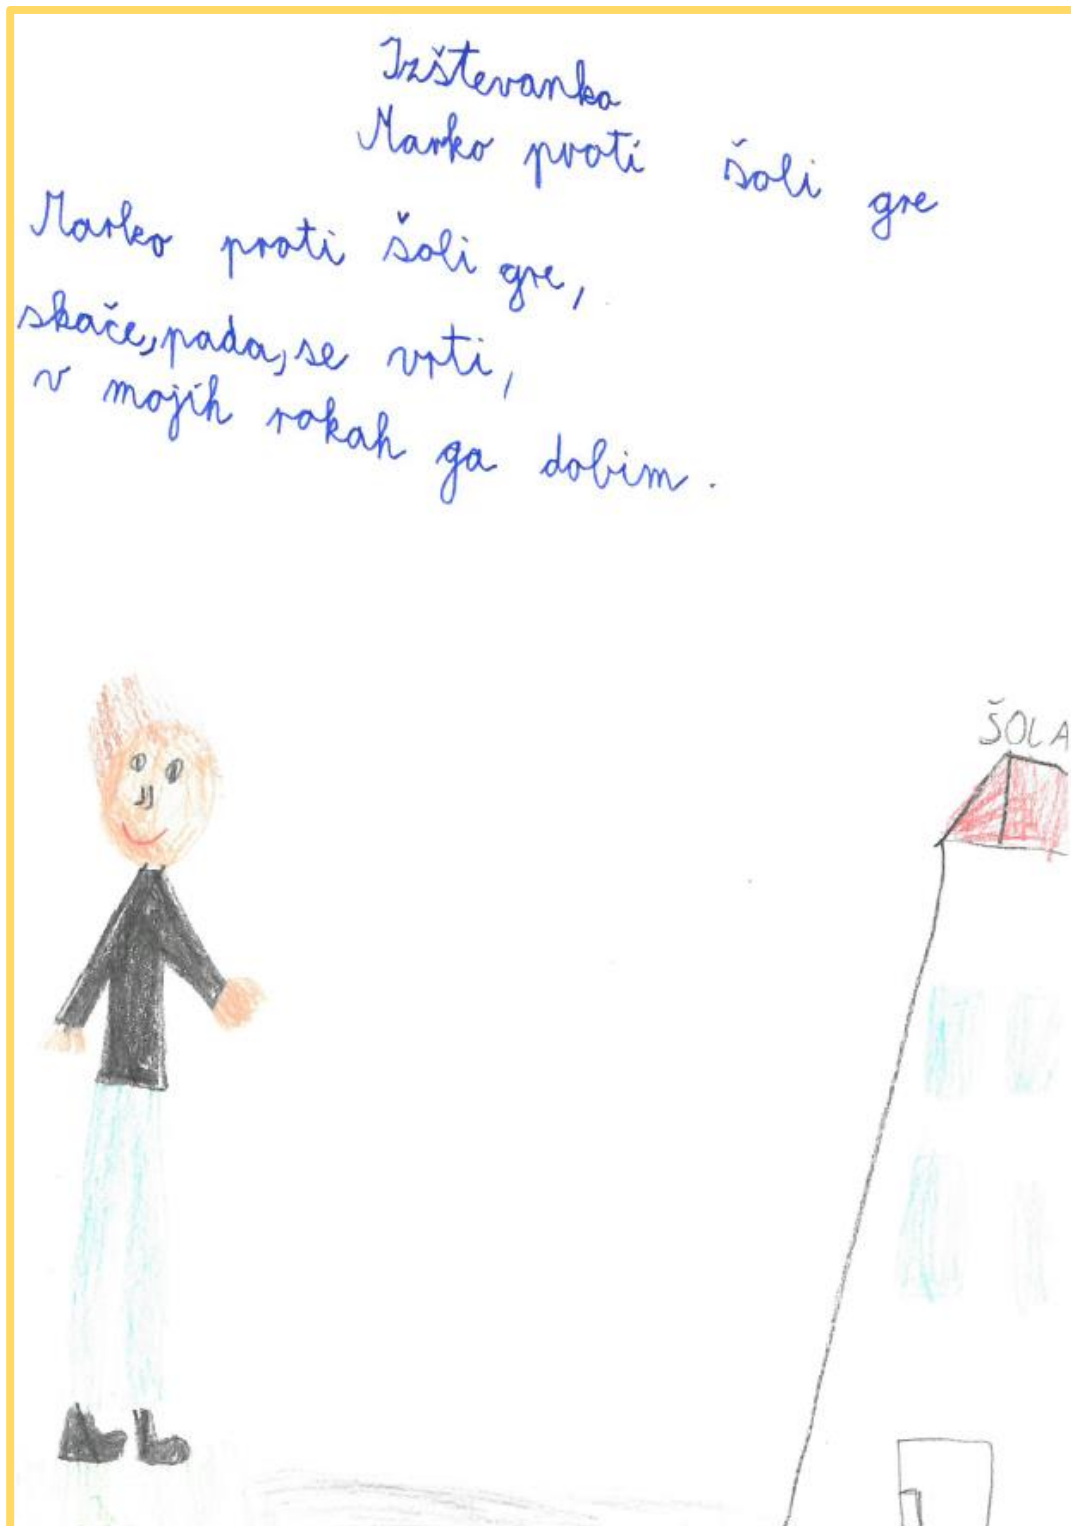 Izštevanka
Marko proti šoli gre
Marko proti šoli gre,
skače, pada, se vrti,
v mojih rokah ga dobim.
ŠOLA